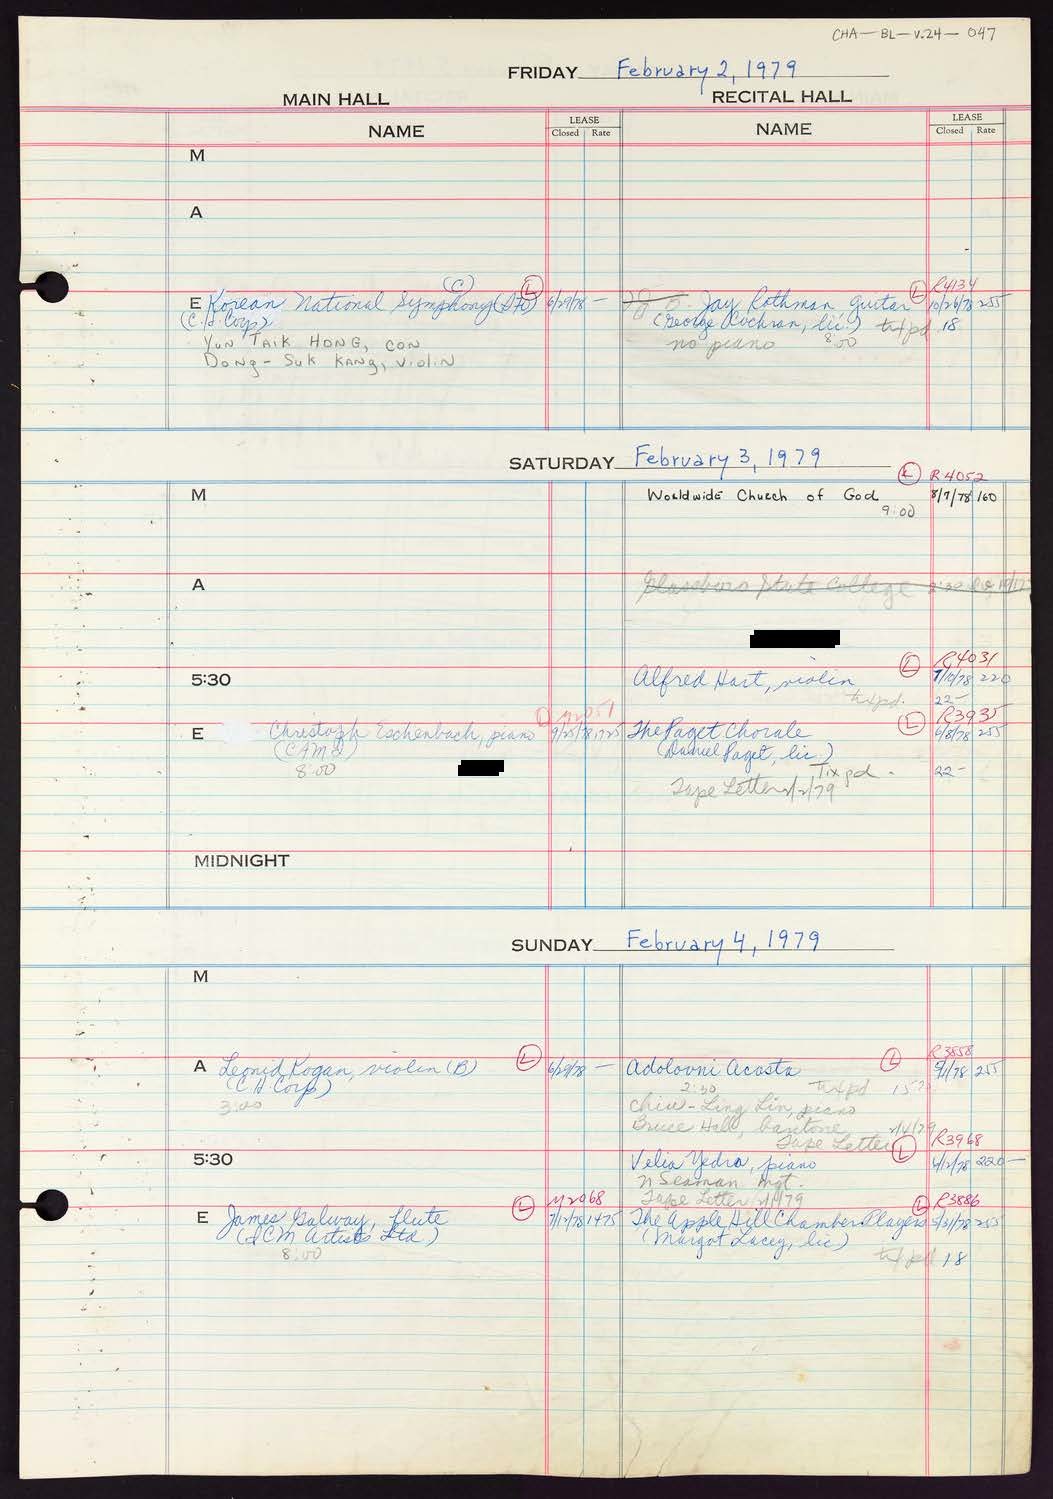 CHA-BL-V.24-047
FRIDAY February 2, 1979
MAIN HALL RECITAL HALL
NAME LEASE Closed Rate NAME LEASE Closed Rate
M
A
(C) L R4134
E Korean National Symphony 6/29/78 — Jay Rothman, guitar L 10/26/78 255
(C.H. Corp) (George Cochran, lic.) tix pd 18
YUN TAIK HONG, CON no piano 8:00
DONG-SUK KANG, VIOLIN
SATURDAY February 3, 1979
L R4052
M Worldwide Church of God 8/7/78 160
9:00
A Glassboro State College
L R4031
5:30 Alfred Hart, violin 7/10/78 220
tix pd. 22-
M2051 L R3935
E Christoph Eschenbach, piano 9/25/78 1725 The Paget Chorale 6/8/78 255
(CAMI) (Daniel Paget, lic.)
8:00 Tix pd. 22-
Tape Letter 2/2/79
MIDNIGHT
SUNDAY February 4, 1979
M
L L R3858
A Leonid Kogan, violin (B) 6/29/78 — Adolovni Acosta 9/1/78 255
(C H Corp) 2:30 tix pd
3:00 Chiu-Ling Lin, piano
Bruce Hall, baritone
Tape Letter L R3968
5:30 Velia Yedra, piano 4/12/78 220 —
N Seaman Mgt.
L M2068 Tape Letter 2/1/79 L R3886
E James Galway, flute 7/17/78 1475 The Apple Hill Chamber Players 5/31/78 255
(ICM Artists Ltd) (Margot Lacey, lic)
8:00 tix pd 18